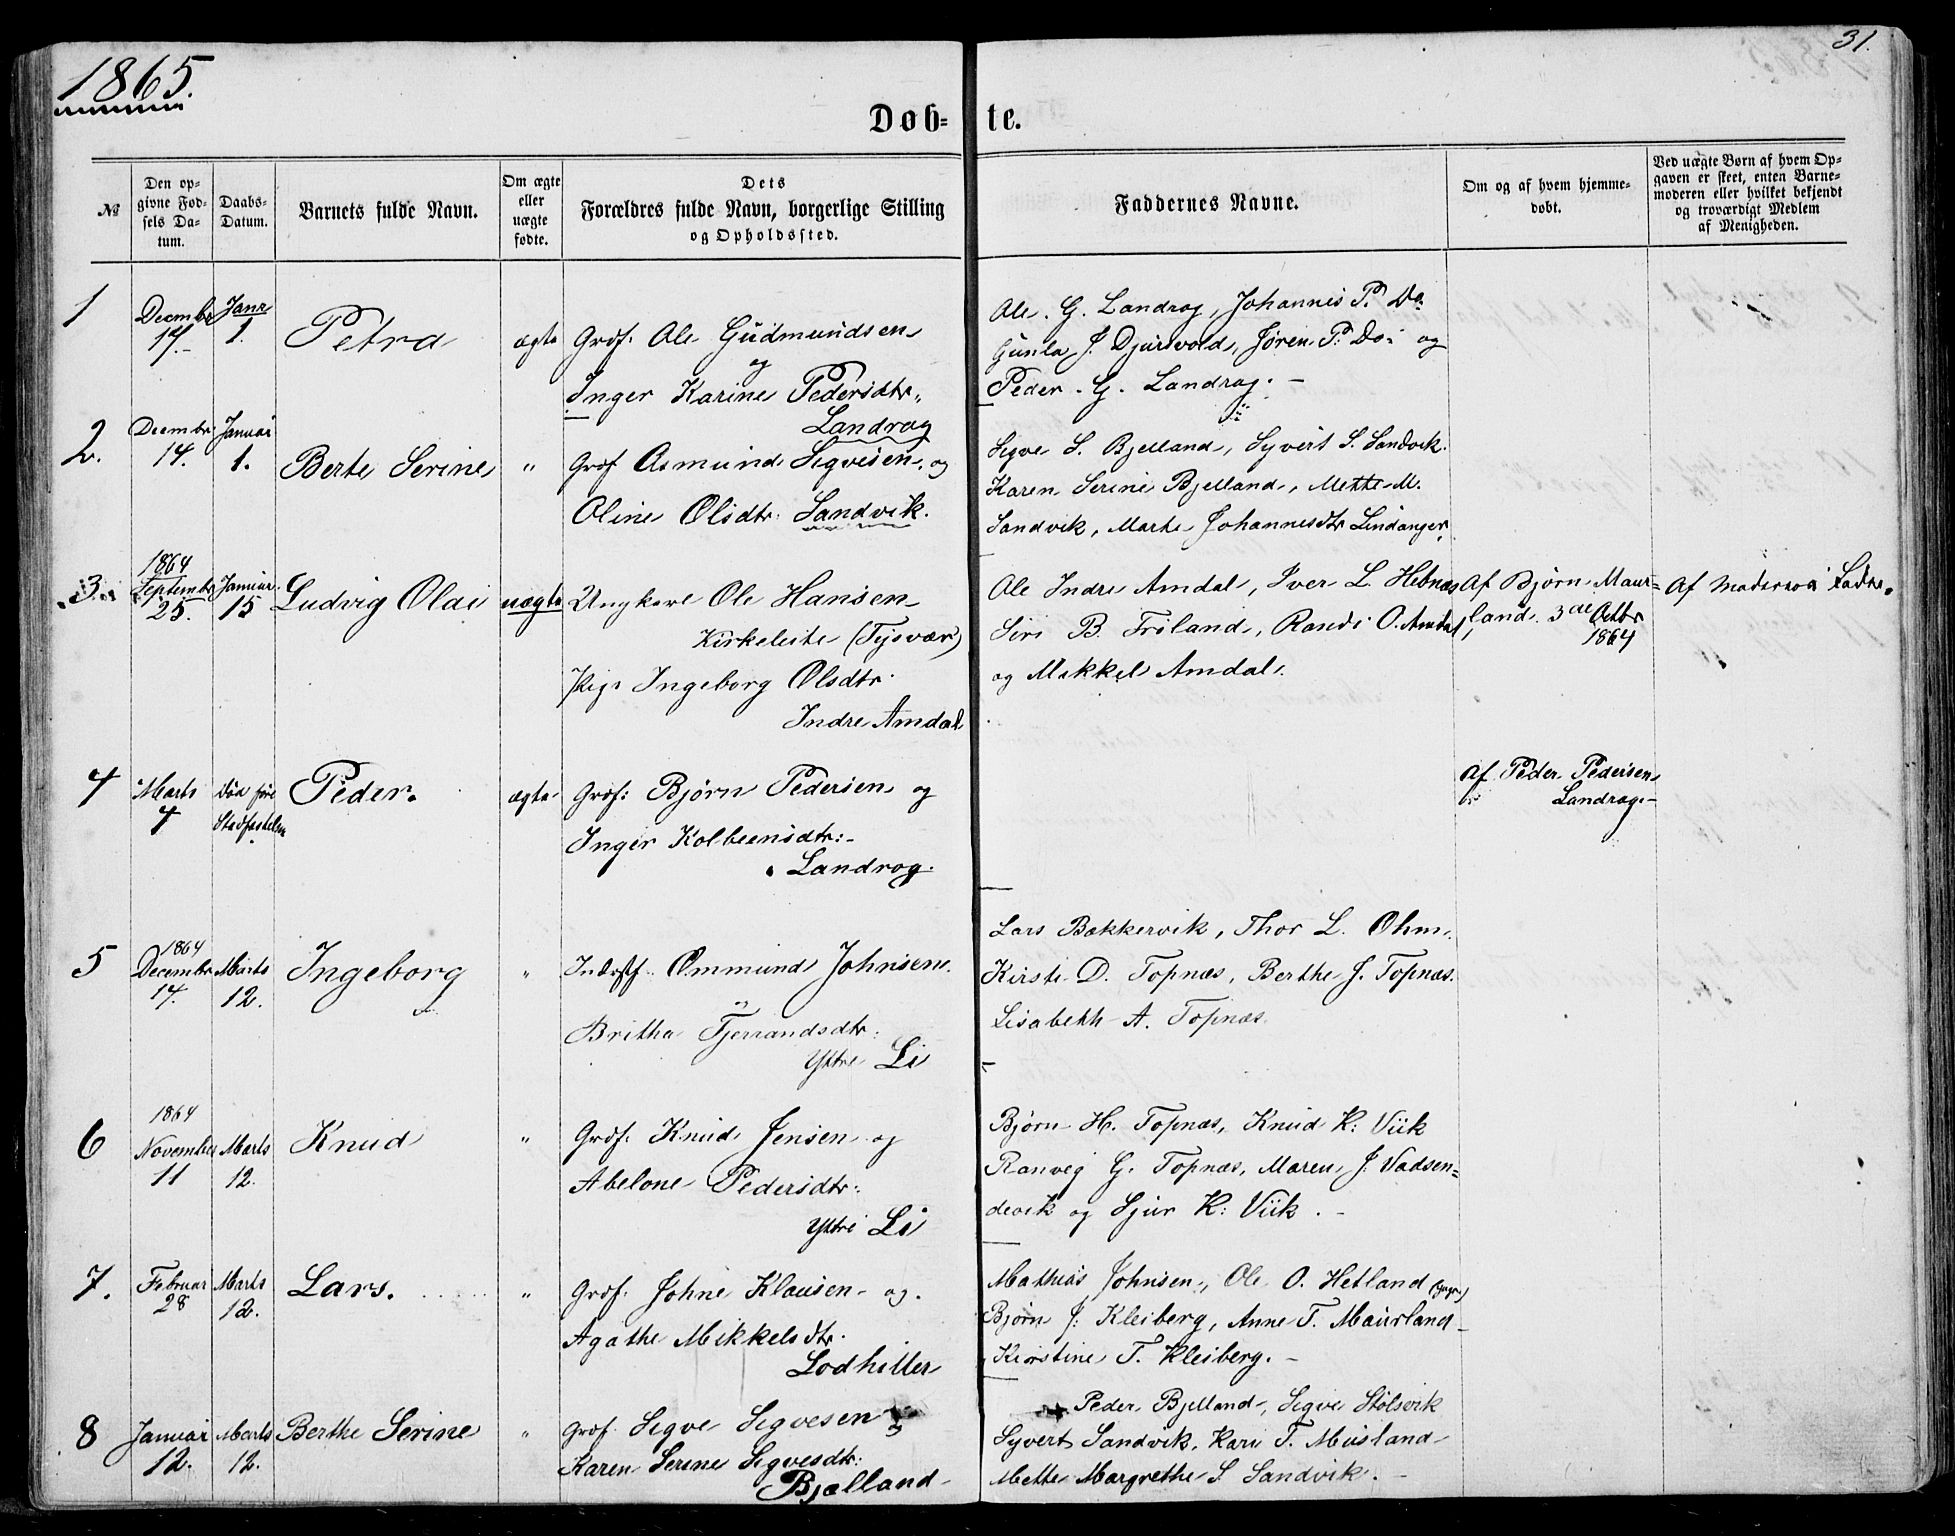 1865.
31.
Døb= te.
№
Den op=
givne Fød=
sels Da=
tum.
Daabs=
Datum.
Barnets fulde Navn.
Om ægte
eller
uægte
fødte.
Dets
Forældres fulde Navn, borgerlige Stilling
og Opholdssted.
Faddernes Navne.
Om og af hvem hjemme=
døbt.
Ved uægte Børn af hvem Op=
gaven er skeet, enten Barne=
moderen eller hvilket bekjendt
og troværdigt Medlem
af Menigheden.
1
Decmbr
17.-
Janr
1.
Petra
ægte
Grdf. Ole Gudmundsen
og
Inger Karine Pedersdtr.
Landrog
Ole. G. Landrog, Johannis P. Do.
Gunla J. Djursvold, Jøren P. Do. og
Peder. G. Landrog. -
2.
Decmbr.
14.
Januar
1.
Berte Serine
"
Grdf Asmund Segvesen, og
Oline Olsdtr. Sandvik.
Segve S. Bjelland, Syvert S. Sandvik.
Karen Serine Bjelland, Mette M.
Sandvik, Marte Johannesdtr Lindanger.
3.
1864
Septembr
25.
Januar
15
Ludvig Olai
uægte
Ungkarl Ole Hansen
Kirkeleite (Tysvær)
Pige Ingeborg Olsdtr.
Indre Amdal
Ole Indre Amdal, Iver L. Hebnæs
Siri B. Friland, Randi O. Amdal,
og Mikkel Amdal.
Af Bjørn Maur=
land. 3die Octbr
1864
Af Moderens Fader.
4
Marts
4
Død før
Stadfæstelsen
Peder.
ægte
Grdf: Bjørn Pedersen og
Inger Kolbeensdtr:-
Landrog.
Af Peder Pedersen
Landrog.-
5
1864
Decembr
17.
Marts
12.
Ingeborg
"
Inderstf. Ommund Johnsen
Britha Tjerrandsdtr:
Yttre Li
Lars Bakkervik, Thor L. Ohm.
Kirsti D. Topnæs, Berthe J. Topnæs.
Lisabeth A. Topnæs.
6
1864
November
11
Marts
12.
Knud
"
Grdf. Knud Jensen og
Abelone Pedersdtr:
Yttre Li
Bjørn H. Topnæs, Knud K: Viik
Ranveig G. Topnæs, Maren J. Vadsen=
devik og Sjur K: Viik. -
7.
Februar
28
Marts
12.
Lars.
"
Grdf. Johne Klausen og.
Agathe Mikkelsdtr.
Lodhiller
Mathias Johnsen, Ole O. Hetland
Bjørn J: Kleiberg, Anne T. Maurland
Kirstine T. Kleiberg. -
8
Januar
12.
Marts
12.
Berthe Serine
"
Grdf. Segve Segvesen og
Karen Serine Segvesdtr:
Bjælland
Peder Bjelland, Segve Stølsvik
Syvert Sandvik, Kari T. Musland
Mette Margrethe S. Sandvik. -